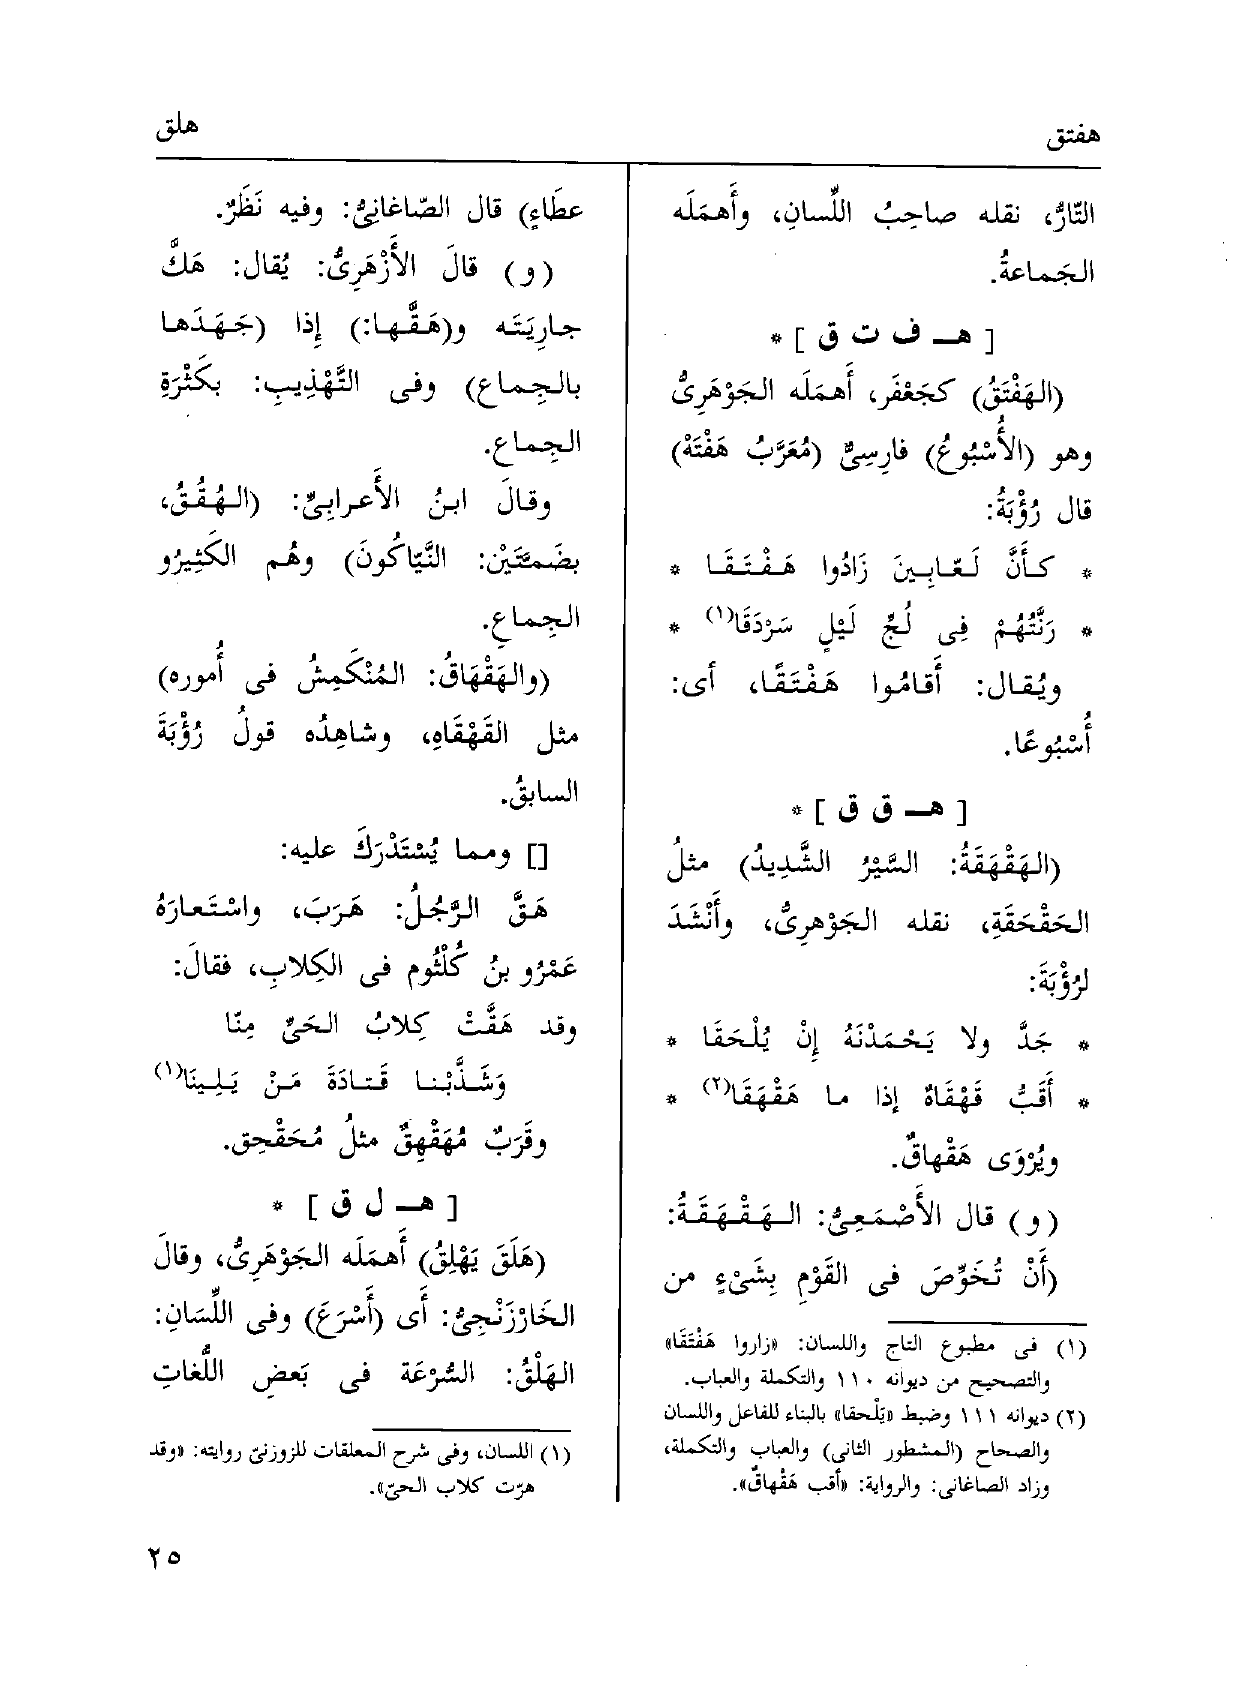 هفتق
هلق
التّارُّ، نقله صاحِبُ اللِّسانِ، وأَهمَلَه
الجَماعةُ.
[ هـ ف ت ق ] *
(الهَفْتَقُ) كجَعْفَرٍ، أَهمَلَه الجَوْهَرِىُّ
وهو (الأُسْبُوعُ) فارِسِىٌّ (مُعَرَّبُ هَفْتَهْ)
قال رُؤْبَةُ:
* كأَنَّ لَعّابِينَ زَادُوا هَفْتَقَا *
* رَنَّتُهُمْ فِى لُجِّ لَيْلٍ سَرْدَقَا(١) *
ويُقال: أَقامُوا هَفْتَقًا، أى:
أُسْبُوعًا.
[ هـ ق ق ] *
(الهَقْهَقَةُ: السَّيْرُ الشَّدِيدُ) مثلُ
الحَقْحَقَةِ، نقله الجَوْهرِىُّ، وأَنْشَدَ
لرُؤْبَةَ:
* جَدَّ ولا يَحْمَدْنَهُ إِنْ يُلْحَقَا *
* أَقَبُّ قَهْقَاهٌ إذا ما هَقْهَقَا(٢) *
ويُرْوَى هَقْهاقٌ.
(و) قال الأَصْمَعِىُّ: الهَقْهَقَةُ:
(أَنْ تُخَوِّصَ فى القَوْمِ بِشَىْءٍ من
(١) فى مطبوع التاج واللسان: «زاروا هَفْتَقَا»
والتصحيح من ديوانه ١١٠ والتكملة والعباب.
(٢) ديوانه ١١١ وضبط «يَلْحقا» بالبناء للفاعل واللسان
والصحاح (المشطور الثانى) والعباب والتكملة،
وزاد الصاغانى: والرواية: «أقب هَقْهاقٌ».
عطَاءٍ) قال الصّاغانِىُّ: وفيه نَظَرٌ.
(و) قالَ الأَزْهَرِىُّ: يُقال: هَكَّ
جارِيَتَه و(هَقَّها:) إِذا (جَهَدَها
بالجِماع) وفى التَّهْذِيبِ: بكَثْرَةِ
الجِماع.
وقالَ ابنُ الأَعرابِىِّ: (الهُقُقُ،
بضَمتَيْن: النَّيّاكُونَ) وهُم الكَثِيرُو
الجِماعِ.
(والهَقْهَاقُ: المُنْكَمِشُ فى أُموره)
مثل القَهْقَاهِ، وشاهِدُه قولُ رُؤْبَةَ
السابقُ.
[] ومما يُسْتَدْرَكَ عليه:
هَقَّ الرَّجُلُ: هَرَبَ، واسْتَعارَهُ
عَمْرُو بنُ كُلْثُوم فى الكِلابِ، فقالَ:
وقد هَقَّتْ كِلابُ الحَىِّ مِنّا
وَشَذَّبْنا قَتادَةَ مَنْ يَلِينَا(١)
وقَرَبٌ مُهَقْهِقٌ مثلُ مُحَقْحِق.
[ هـ ل ق ] *
(هَلَقَ يَهْلِقُ) أَهمَلَه الجَوْهَرِىُّ، وقالَ
الخَارْزَنْجِىُّ: أَى (أَسْرَعَ) وفى اللِّسَانِ:
الهَلْقُ: السُّرْعَة فى بَعضِ اللُّغاتِ
(١) اللسان، وفى شرح المعلقات للزوزنىّ روايته: «وقد
هرّت كلاب الحىّ».
٢٥